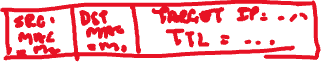 SRC: MAC = M.
DST MAC = M.
TARGET IP = ...
TTL = ...